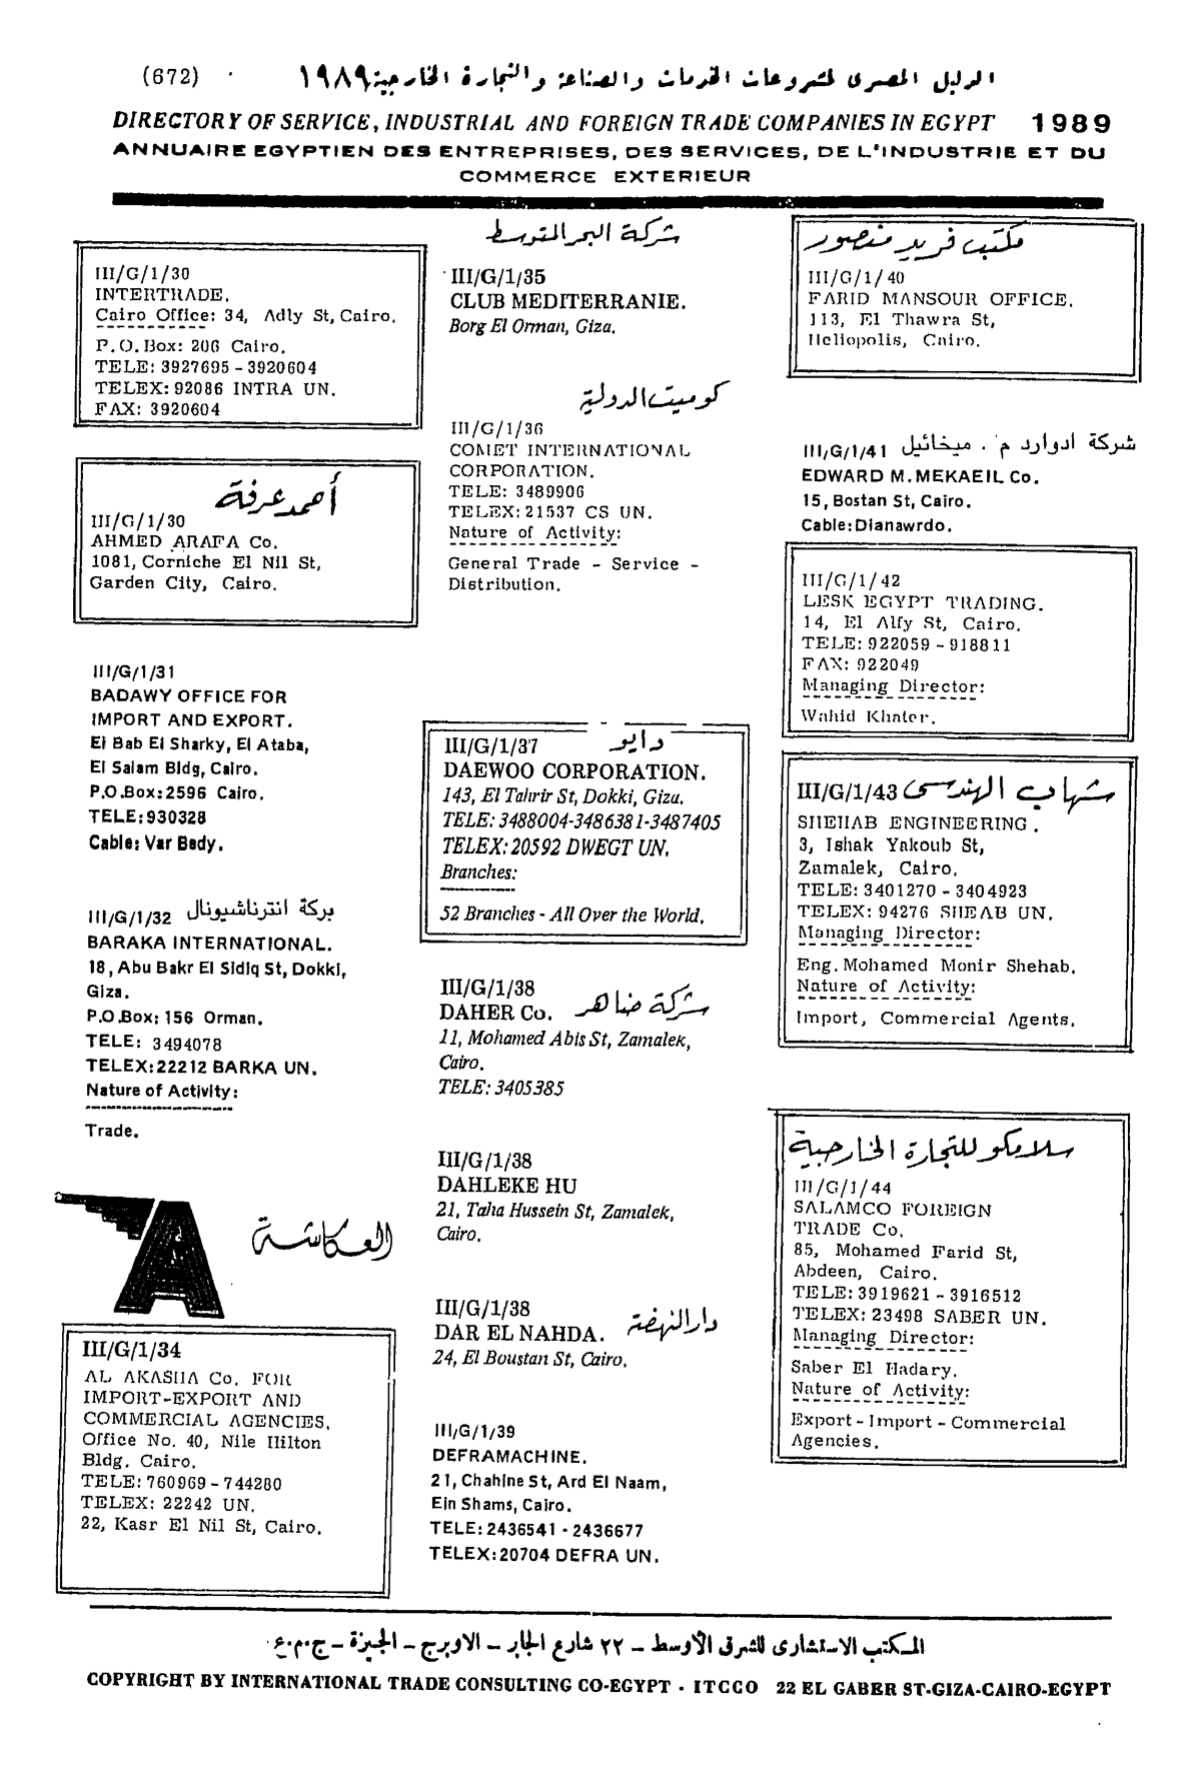 (672)
الدليل المصرى لمشروعات الخدمات والصناعة والتجارة الخارجية ١٩٨٩
DIRECTORY OF SERVICE, INDUSTRIAL AND FOREIGN TRADE COMPANIES IN EGYPT 1989
ANNUAIRE EGYPTIEN DES ENTREPRISES, DES SERVICES, DE L'INDUSTRIE ET DU
COMMERCE EXTERIEUR
III/G/1/30
INTERTRADE.
Cairo Office: 34, Adly St, Cairo.
P.O.Box: 206 Cairo.
TELE: 3927695 - 3920604
TELEX: 92086 INTRA UN.
FAX: 3920604
أحمد عرفة
III/G/1/30
AHMED ARAFA Co.
1081, Corniche El Nil St,
Garden City, Cairo.
III/G/1/31
BADAWY OFFICE FOR
IMPORT AND EXPORT.
El Bab El Sharky, El Ataba,
El Salam Bldg, Cairo.
P.O.Box: 2596 Cairo.
TELE: 930328
Cable: Var Bedy.
III/G/1/32 بركة انترناشيونال
BARAKA INTERNATIONAL.
18, Abu Bakr El Sidiq St, Dokki,
Giza.
P.O.Box: 156 Orman.
TELE: 3494078
TELEX: 22212 BARKA UN.
Nature of Activity:
Trade.
A
العكاشة
III/G/1/34
AL AKASHA Co. FOR
IMPORT-EXPORT AND
COMMERCIAL AGENCIES.
Office No. 40, Nile Hilton
Bldg. Cairo.
TELE: 760969 - 744280
TELEX: 22242 UN.
22, Kasr El Nil St, Cairo.
شركة البحر المتوسط
III/G/1/35
CLUB MEDITERRANIE.
Borg El Orman, Giza.
كوميت الدولية
III/G/1/36
COMET INTERNATIONAL
CORPORATION.
TELE: 3489906
TELEX: 21537 CS UN.
Nature of Activity:
General Trade - Service -
Distribution.
III/G/1/37 دايو
DAEWOO CORPORATION.
143, El Tahrir St, Dokki, Giza.
TELE: 3488004-3486381-3487405
TELEX: 20592 DWEGT UN.
Branches:
52 Branches - All Over the World.
III/G/1/38
DAHER Co. شركة ضاهر
11, Mohamed Abis St, Zamalek,
Cairo.
TELE: 3405385
III/G/1/38
DAHLEKE HU
21, Taha Hussein St, Zamalek,
Cairo.
III/G/1/38
DAR EL NAHDA. دار النهضة
24, El Boustan St, Cairo.
III/G/1/39
DEFRAMACHINE.
21, Chahine St, Ard El Naam,
Ein Shams, Cairo.
TELE: 2436541 - 2436677
TELEX: 20704 DEFRA UN.
مكتب فريد منصور
III/G/1/40
FARID MANSOUR OFFICE.
113, El Thawra St,
Heliopolis, Cairo.
III/G/1/41 شركة ادوارد م . ميخائيل
EDWARD M. MEKAEIL Co.
15, Bostan St, Cairo.
Cable: Dianawrdo.
III/G/1/42
LESK EGYPT TRADING.
14, El Alfy St, Cairo.
TELE: 922059 - 918811
FAX: 922049
Managing Director:
Wahid Khater.
III/G/1/43 شهاب الهندسى
SHEHAB ENGINEERING.
3, Ishak Yakoub St,
Zamalek, Cairo.
TELE: 3401270 - 3404923
TELEX: 94276 SHEAB UN.
Managing Director:
Eng. Mohamed Monir Shehab.
Nature of Activity:
Import, Commercial Agents.
سلامكو للتجارة الخارجية
III/G/1/44
SALAMCO FOREIGN
TRADE Co.
85, Mohamed Farid St,
Abdeen, Cairo.
TELE: 3919621 - 3916512
TELEX: 23498 SABER UN.
Managing Director:
Saber El Hadary.
Nature of Activity:
Export - Import - Commercial
Agencies.
المكتب الاستشارى للشرق الأوسط ــ ٢٢ شارع الجابر ــ الاوبرج ــ الجيزة ــ ج.م.ع.
COPYRIGHT BY INTERNATIONAL TRADE CONSULTING CO-EGYPT - ITCCO 22 EL GABER ST-GIZA-CAIRO-EGYPT